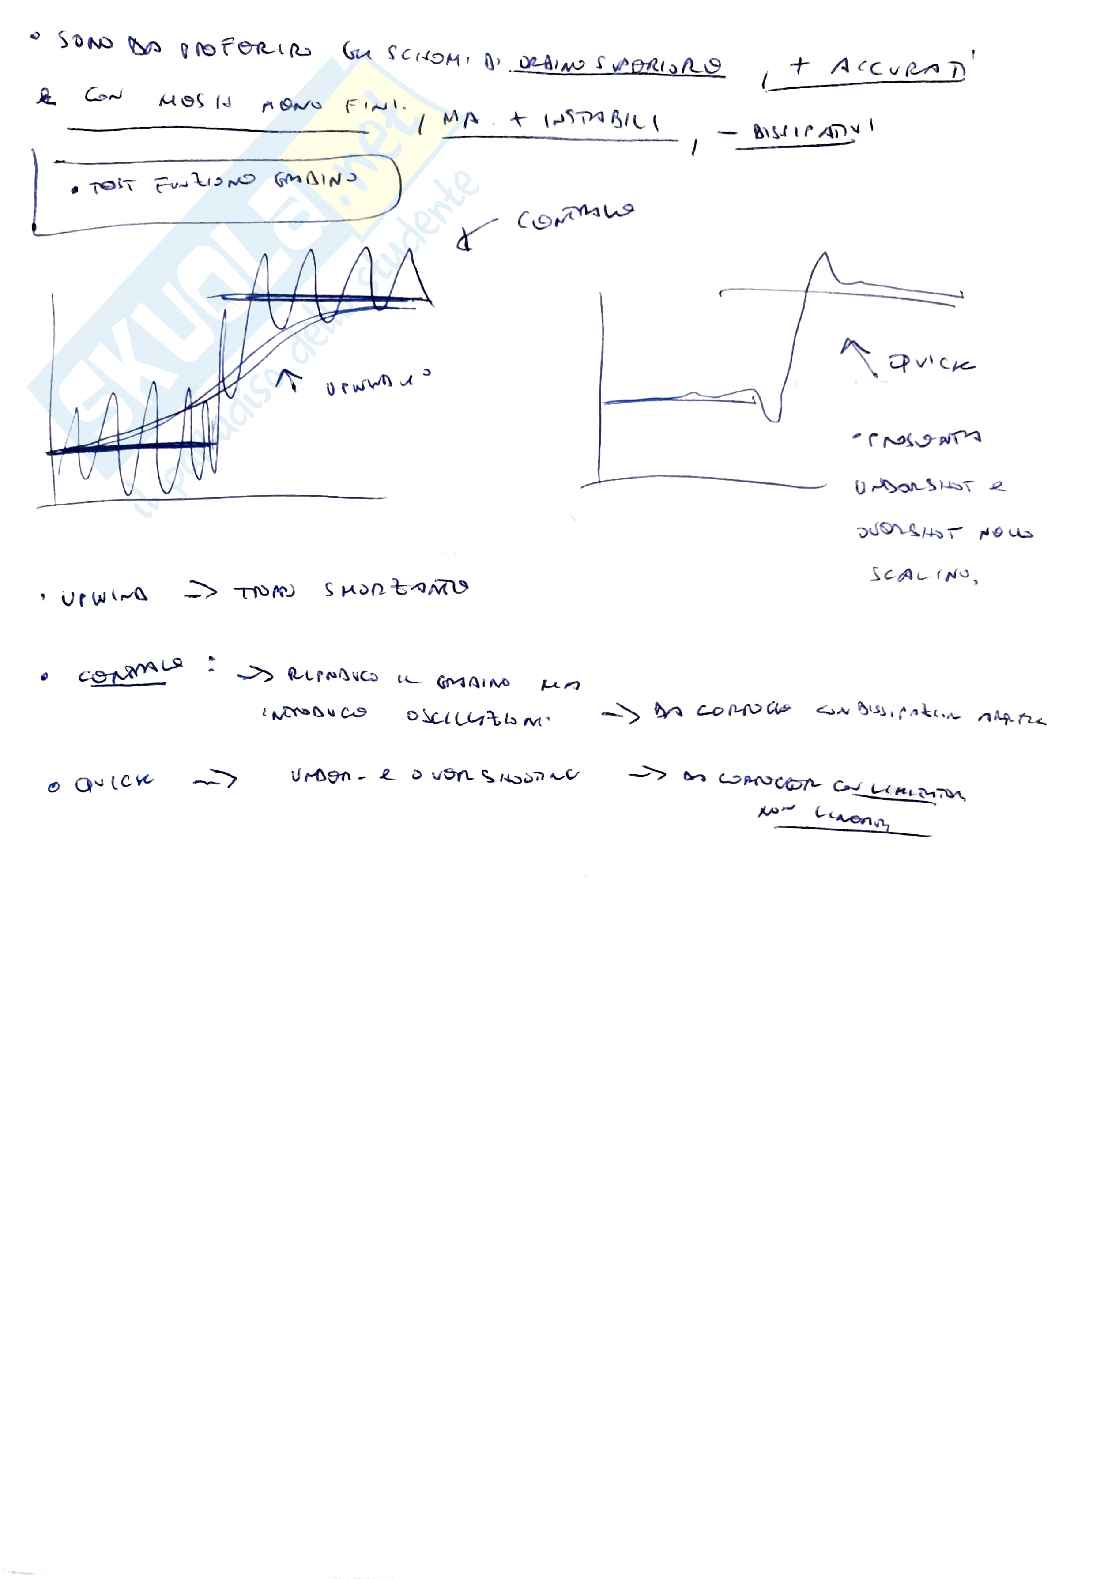 • SONO DA PREFERIRE GLI SCHEMI DI ORDINE SUPERIORE, + ACCURATI
E CON MESH MENO FINI, MA + INSTABILI, - DISSIPATIVI
• TEST FUNZIONE GRADINO
CENTRALE
UPWIND 1°
QUICK
• PRESENTA
UNDERSHOT E
OVERSHOT NELLO
SCALINO.
• UPWIND -> TROPPO SMORZANTE
• CENTRALE : -> RIPRODUCE IL GRADINO MA
INTRODUCE OSCILLAZIONI -> DA CORREGGERE CON DISSIPAZIONE
• QUICK -> UNDER- E OVERSHOOTING -> DA CORREGGERE CON LIMITER
NON LINEARI
SKUOLA.net
il paradiso dello studente